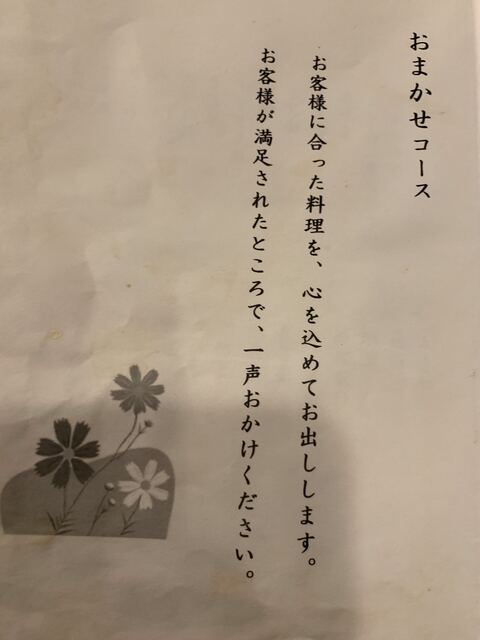 おまかせコース
お客様に合った料理を、心を込めてお出しします。
お客様が満足されたところで、一声おかけください。